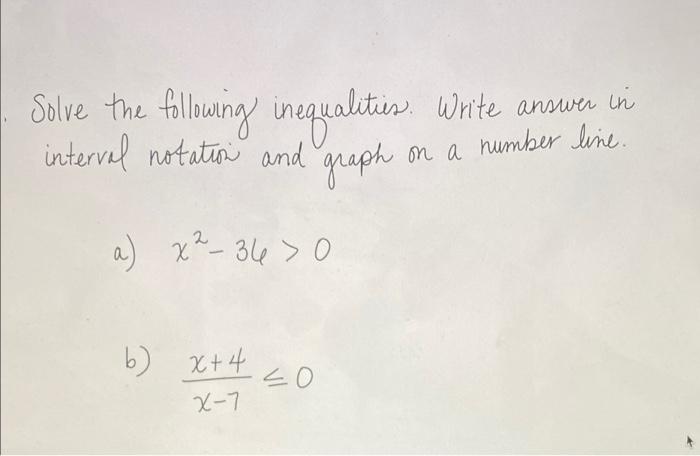 Solve the following inequalities. Write answer in
interval notation and graph on a number line.
a) x² - 36 > 0
b) x+4
x-7
≤ 0